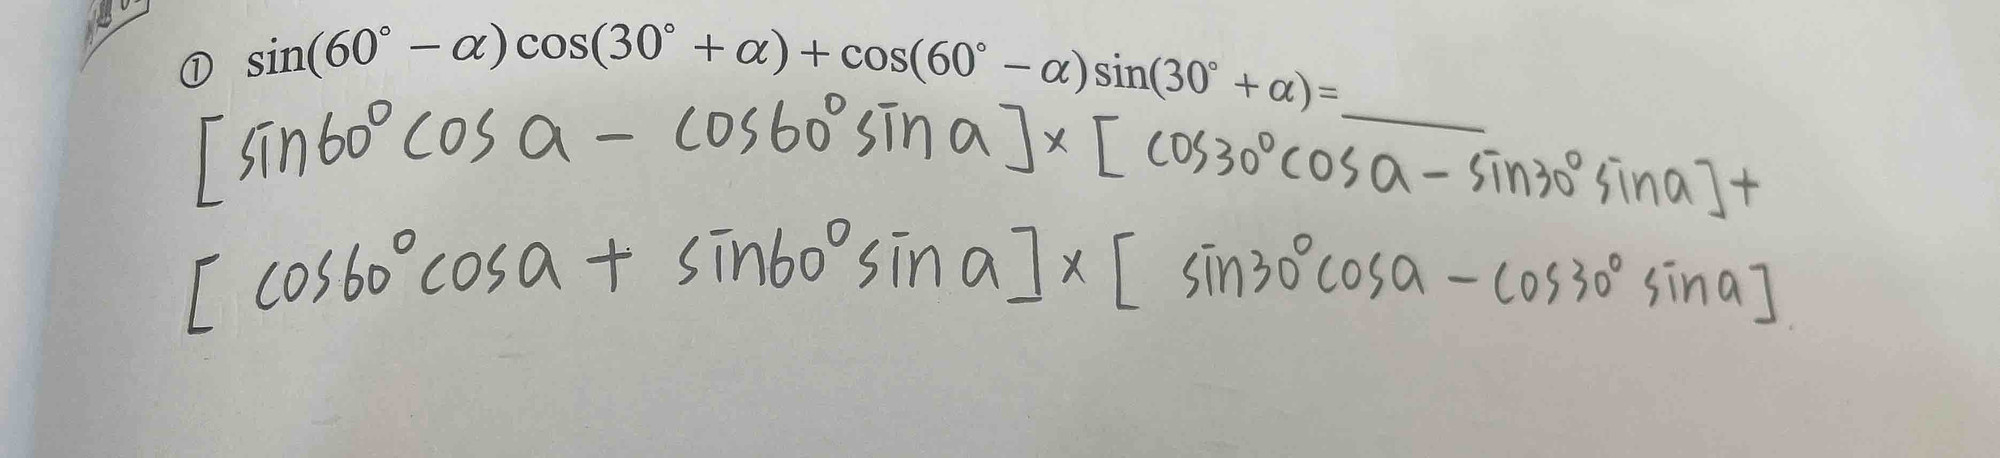 ① sin(60° − α)cos(30° + α) + cos(60° − α)sin(30° + α)=______
[sin60°cos a − cos60°sin a]×[cos30°cosa − sin30°sina]+
[cos60°cosa + sin60°sin a]×[sin30°cosa − cos30°sina]